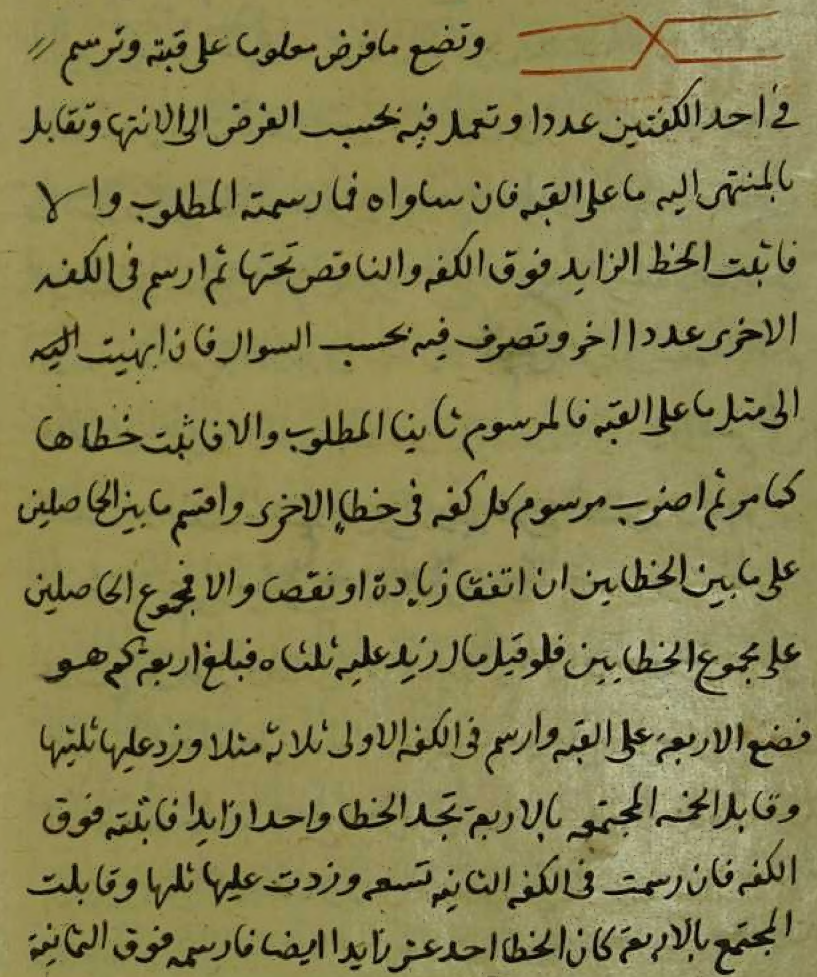 وتضع ما فرض معلوما على قبته وترسم
في احد الكفتين عددا وتعمل فيه بحسب الفرض الى الانتها وتقابل
بالمنتهى اليه ما على القبه فان ساواه فما رسمته المطلوب والا
فاثبت الخطا الزايد فوق الكفه والناقص تحتها ثم ارسم في الكفه
الاخرى عددا اخر وتصرف فيه بحسب السوال فان انهيت اليه
الى مثل ما على القبه فالمرسوم ثانيا المطلوب والا فاثبت خطاها
كما مر ثم اضرب مرسوم كل كفه في خطا الاخرى واقسم ما بين الحاصلين
على ما بين الخطاين ان اتفقا زيادة او نقصا والا فمجموع الحاصلين
على مجموع الخطايين فلو قيل مال زيد عليه ثلثاه فبلغ اربعة كم هو
فضع الاربعة على القبه وارسم في الكفه الاولى ثلاثه مثلا وزد عليها ثلثيها
وقابل الخمسه المجتمعه بالاربعة تجد الخطا واحدا زايدا فاثبته فوق
الكفه فان رسمت في الكفه الثانيه تسعه وزدت عليها ثلثها وقابلت
المجتمع بالاربعة كان الخطا احد عشر زايدا ايضا فارسمه فوق الثانية